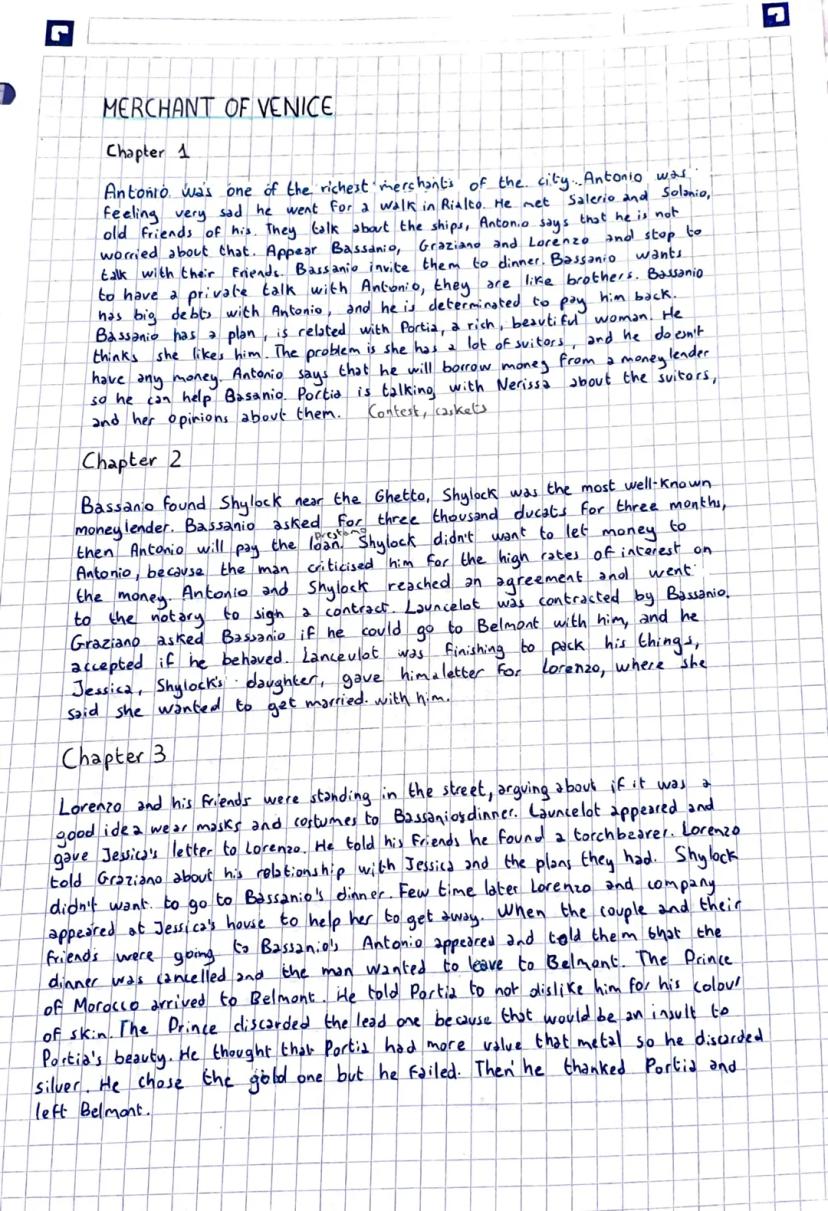 MERCHANT OF VENICE
Chapter 1
Antonio was one of the richest merchants of the city. Antonio was
feeling very sad he went for a walk in Rialto. He met Salerio and Solanio,
old friends of his. They talk about the ships, Antonio says that he is not
worried about that. Appear Bassanio, Graziano and Lorenzo and stop to
talk with their friends. Bassanio invite them to dinner. Bassanio wants
to have a private talk with Antonio, they are like brothers. Bassanio
has big debts with Antonio, and he is determinated to pay him back.
Bassanio has a plan, is related with Portia, a rich, beautiful woman. He
thinks she likes him. The problem is she has a lot of suitors, and he doesn't
have any money. Antonio says that he will borrow money from a moneylender
so he can help Basanio. Portia is talking with Nerissa about the suitors,
and her opinions about them. Contest, caskets
Chapter 2
Bassanio found Shylock near the Ghetto, Shylock was the most well-known
moneylender. Bassanio asked for three thousand ducats for three months,
préstamo
then Antonio will pay the loan. Shylock didn't want to let money to
Antonio, because the man criticised him for the high rates of interest on
the money. Antonio and Shylock reached an agreement and went
to the notary to sign a contract. Launcelot was contracted by Bassanio.
Graziano asked Bassanio if he could go to Belmont with him, and he
accepted if he behaved. Lanceulot was finishing to pack his things,
Jessica, Shylock's daughter, gave him a letter for Lorenzo, where she
said she wanted to get married with him.
Chapter 3
Lorenzo and his friends were standing in the street, arguing about if it was a
good idea wear masks and costumes to Bassanios dinner. Launcelot appeared and
gave Jessica's letter to Lorenzo. He told his friends he found a torchbearer. Lorenzo
told Graziano about his relationship with Jessica and the plans they had. Shylock
didn't want to go to Bassanio's dinner. Few time later Lorenzo and company
appeared at Jessica's house to help her to get away. When the couple and their
friends were going to Bassanio's Antonio appeared and told them that the
dinner was cancelled and the man wanted to leave to Belmont. The Prince
of Morocco arrived to Belmont. He told Portia to not dislike him for his colour
of skin. The Prince discarded the lead one because that would be an insult to
Portia's beauty. He thought that Portia had more value that metal so he discarded
silver. He chose the gold one but he failed. Then he thanked Portia and
left Belmont.